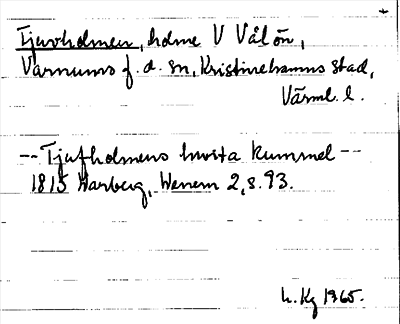 Tjuvholmen, holme V Vålön,
Varnums f.d. sn, Kristinehamns stad,
Värml. l.
-- Tjufholmens hvita kummel --
1815 Warberg, Wenern 2, s. 93.
L. Kg 1965.